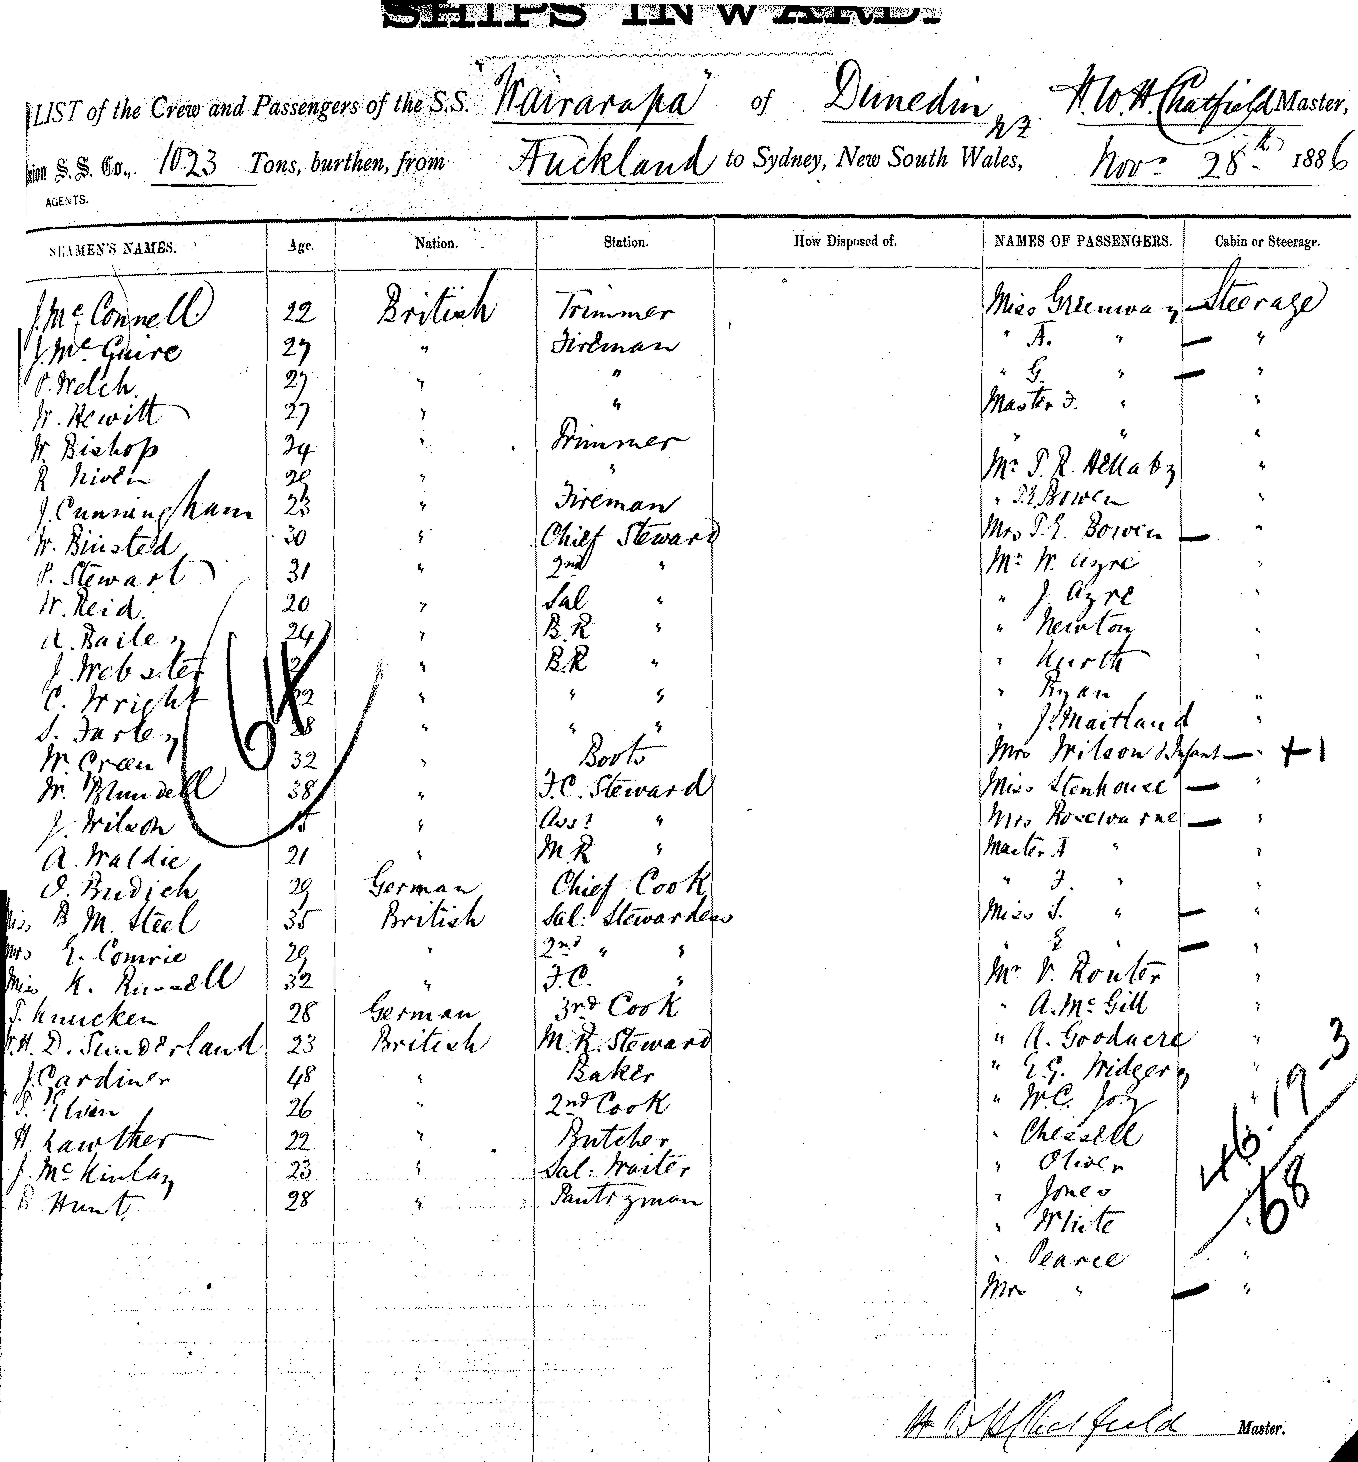 SHIPS INWARD.
LIST of the Crew and Passengers of the S.S. "Wairarapa" of Dunedin NZ H. W. H. Chatfield Master,
Union S. S. Co., 1023 Tons, burthen, from Auckland to Sydney, New South Wales, Nov. 28th 1886
AGENTS.
SEAMEN'S NAMES. Age. Nation. Station. How Disposed of. NAMES OF PASSENGERS. Cabin or Steerage.
J. McConnell 22 British Trimmer Miss Greenway — Steerage
J. McGuire 27 " Fireman " A. " — "
P. Welch 27 " " " G. " — "
W. Hewitt 27 " " Master F. " "
W. Bishop 24 " Trimmer " " "
R Niven 20 " " Mr T. R. Hellaby "
J. Cunningham 23 " Fireman " Bowen "
W. Binsted 30 " Chief Steward Mrs T. E. Bowen — "
P. Stewart 31 " 2nd " Mr W. Ayre "
W. Reid 20 " Sal " " J. Ayre "
A. Bailey 24 " B.R " " Newton "
J. Webster " B.R " " North "
C. Wright 22 " " " " Ryan "
S. Farley 28 " " " " J. Maitland "
W. Creen 32 " Boots Mrs Wilson & Infant — " +1
W. Blundell 38 " F.C. Steward Miss Stenhouse — "
J. Wilson 15 " Asst " Mrs Rosewarne — "
A. Waldie 21 " M R " Master A " "
O. Budich 29 German Chief Cook " F. " "
Miss B M. Steel 35 British Sal: Stewardess Miss S. " — "
Mrs E. Comrie 29 " 2nd " " " E " — "
Miss K. Russell 32 " F.C. " Mr V. Router "
T. Knucken 28 German 3rd Cook " A. McGill "
W. H. D. Sunderland 23 British M. R. Steward " A. Goodacre "
J. Cardiner 48 " Baker " E. G. Widgery "
T. Elvin 26 " 2nd Cook " W. C. Joy "
H. Lawther 22 " Butcher " Chessell "
J. McKinlay 23 " Sal: Waiter " Oliver "
B Hunt 28 " Pantryman " Jones "
" White "
" Pearce "
Mrs " — "
64
46.19-3
68
H W H Chatfield Master.